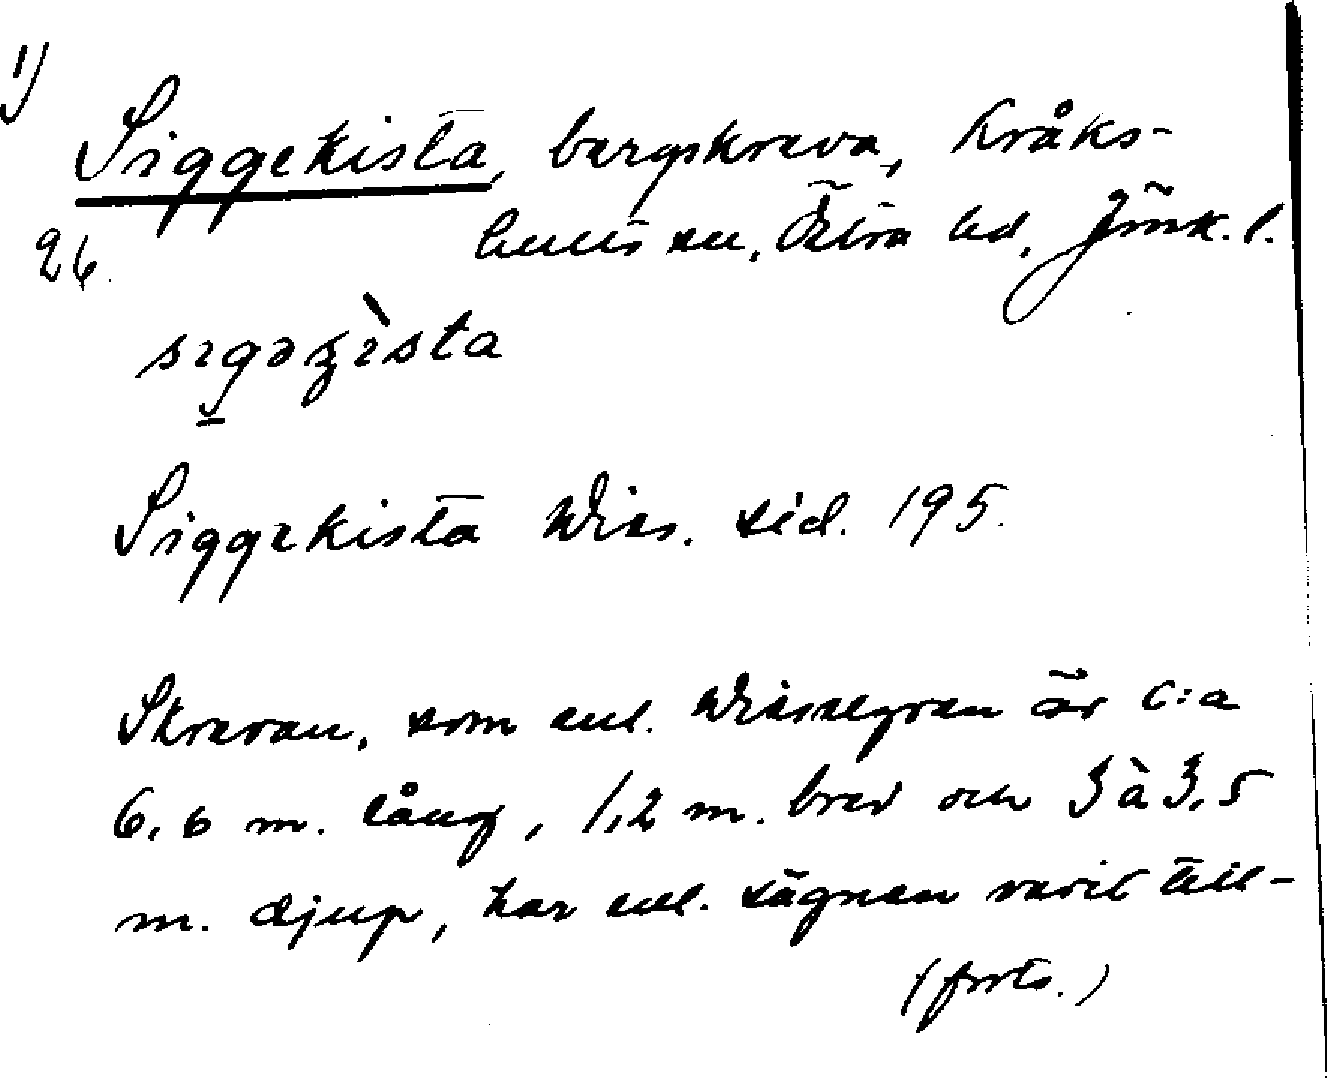 1)
Siggekista, bergskreva, Kråks-
hults sn, Östra hd, Jönk. l.
26.
sıgəʒìsta
Siggekista Wies. sid. 195.
Skrevan, som enl. Wieselgren är c:a
6,6 m. lång, 1,2 m. bred och 3 à 3,5
m. djup, har enl. sägnen varit till-
(forts.)